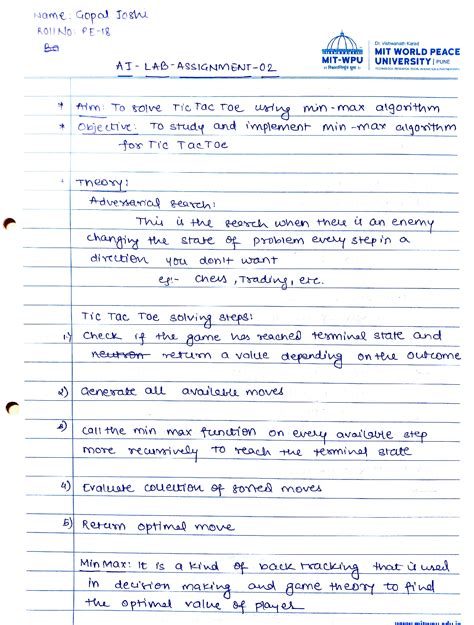 Name: Gopal Joshi
Roll No: PE-18
Dr. Vishwanath Karad
MIT WORLD PEACE
UNIVERSITY | PUNE
MIT-WPU
AI-LAB-ASSIGNMENT-02
* Aim: To solve Tic Tac Toe using min-max algorithm
* Objective: To study and implement min-max algorithm
for Tic Tac Toe
Theory:
Adversarial search:
This is the search when there is an enemy
changing the state of problem every step in a
direction you don't want
eg:- Chess, Trading, etc.
Tic Tac Toe solving steps:
1) Check if the game has reached terminal state and
neutron return a value depending on the outcome
2) Generate all available moves
3) Call the min max function on every available step
more recursively to reach the terminal state
4) Evaluate collection of sorted moves
5) Return optimal move
MinMax: It is a kind of back tracking that is used
in decision making and game theory to find
the optimal value of player
www.mitwpu.edu.in